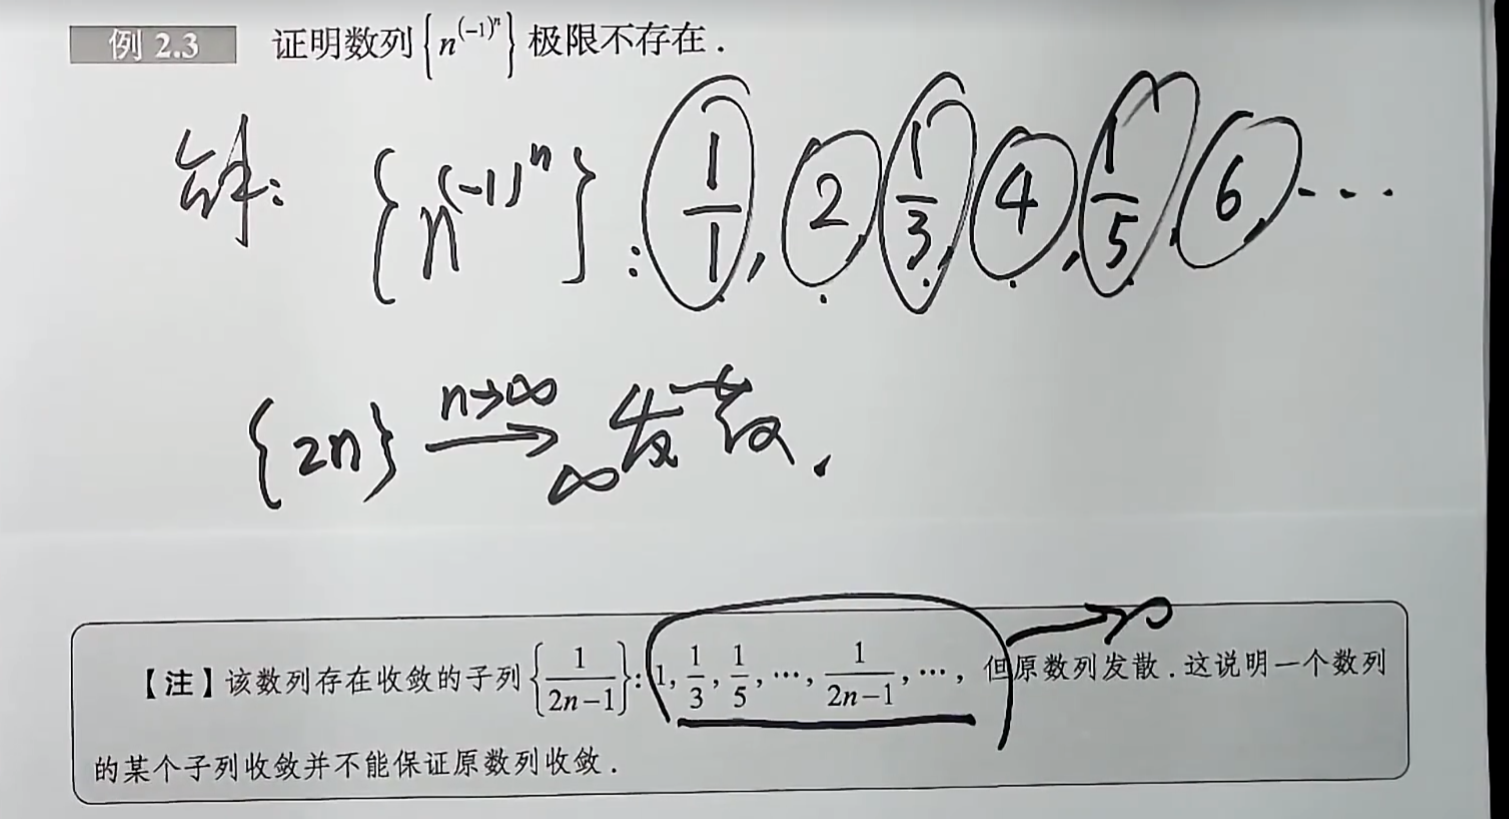 例 2.3 证明数列{n^{(-1)^n}}极限不存在.
解: {n^{(-1)^n}}: 1/1, 2, 1/3, 4, 1/5, 6, ...
{2n} n→∞ ⟶ ∞ 发散.
【注】该数列存在收敛的子列{1/(2n-1)}: 1, 1/3, 1/5, ⋯, 1/(2n-1), ⋯, 但原数列发散.这说明一个数列
的某个子列收敛并不能保证原数列收敛.